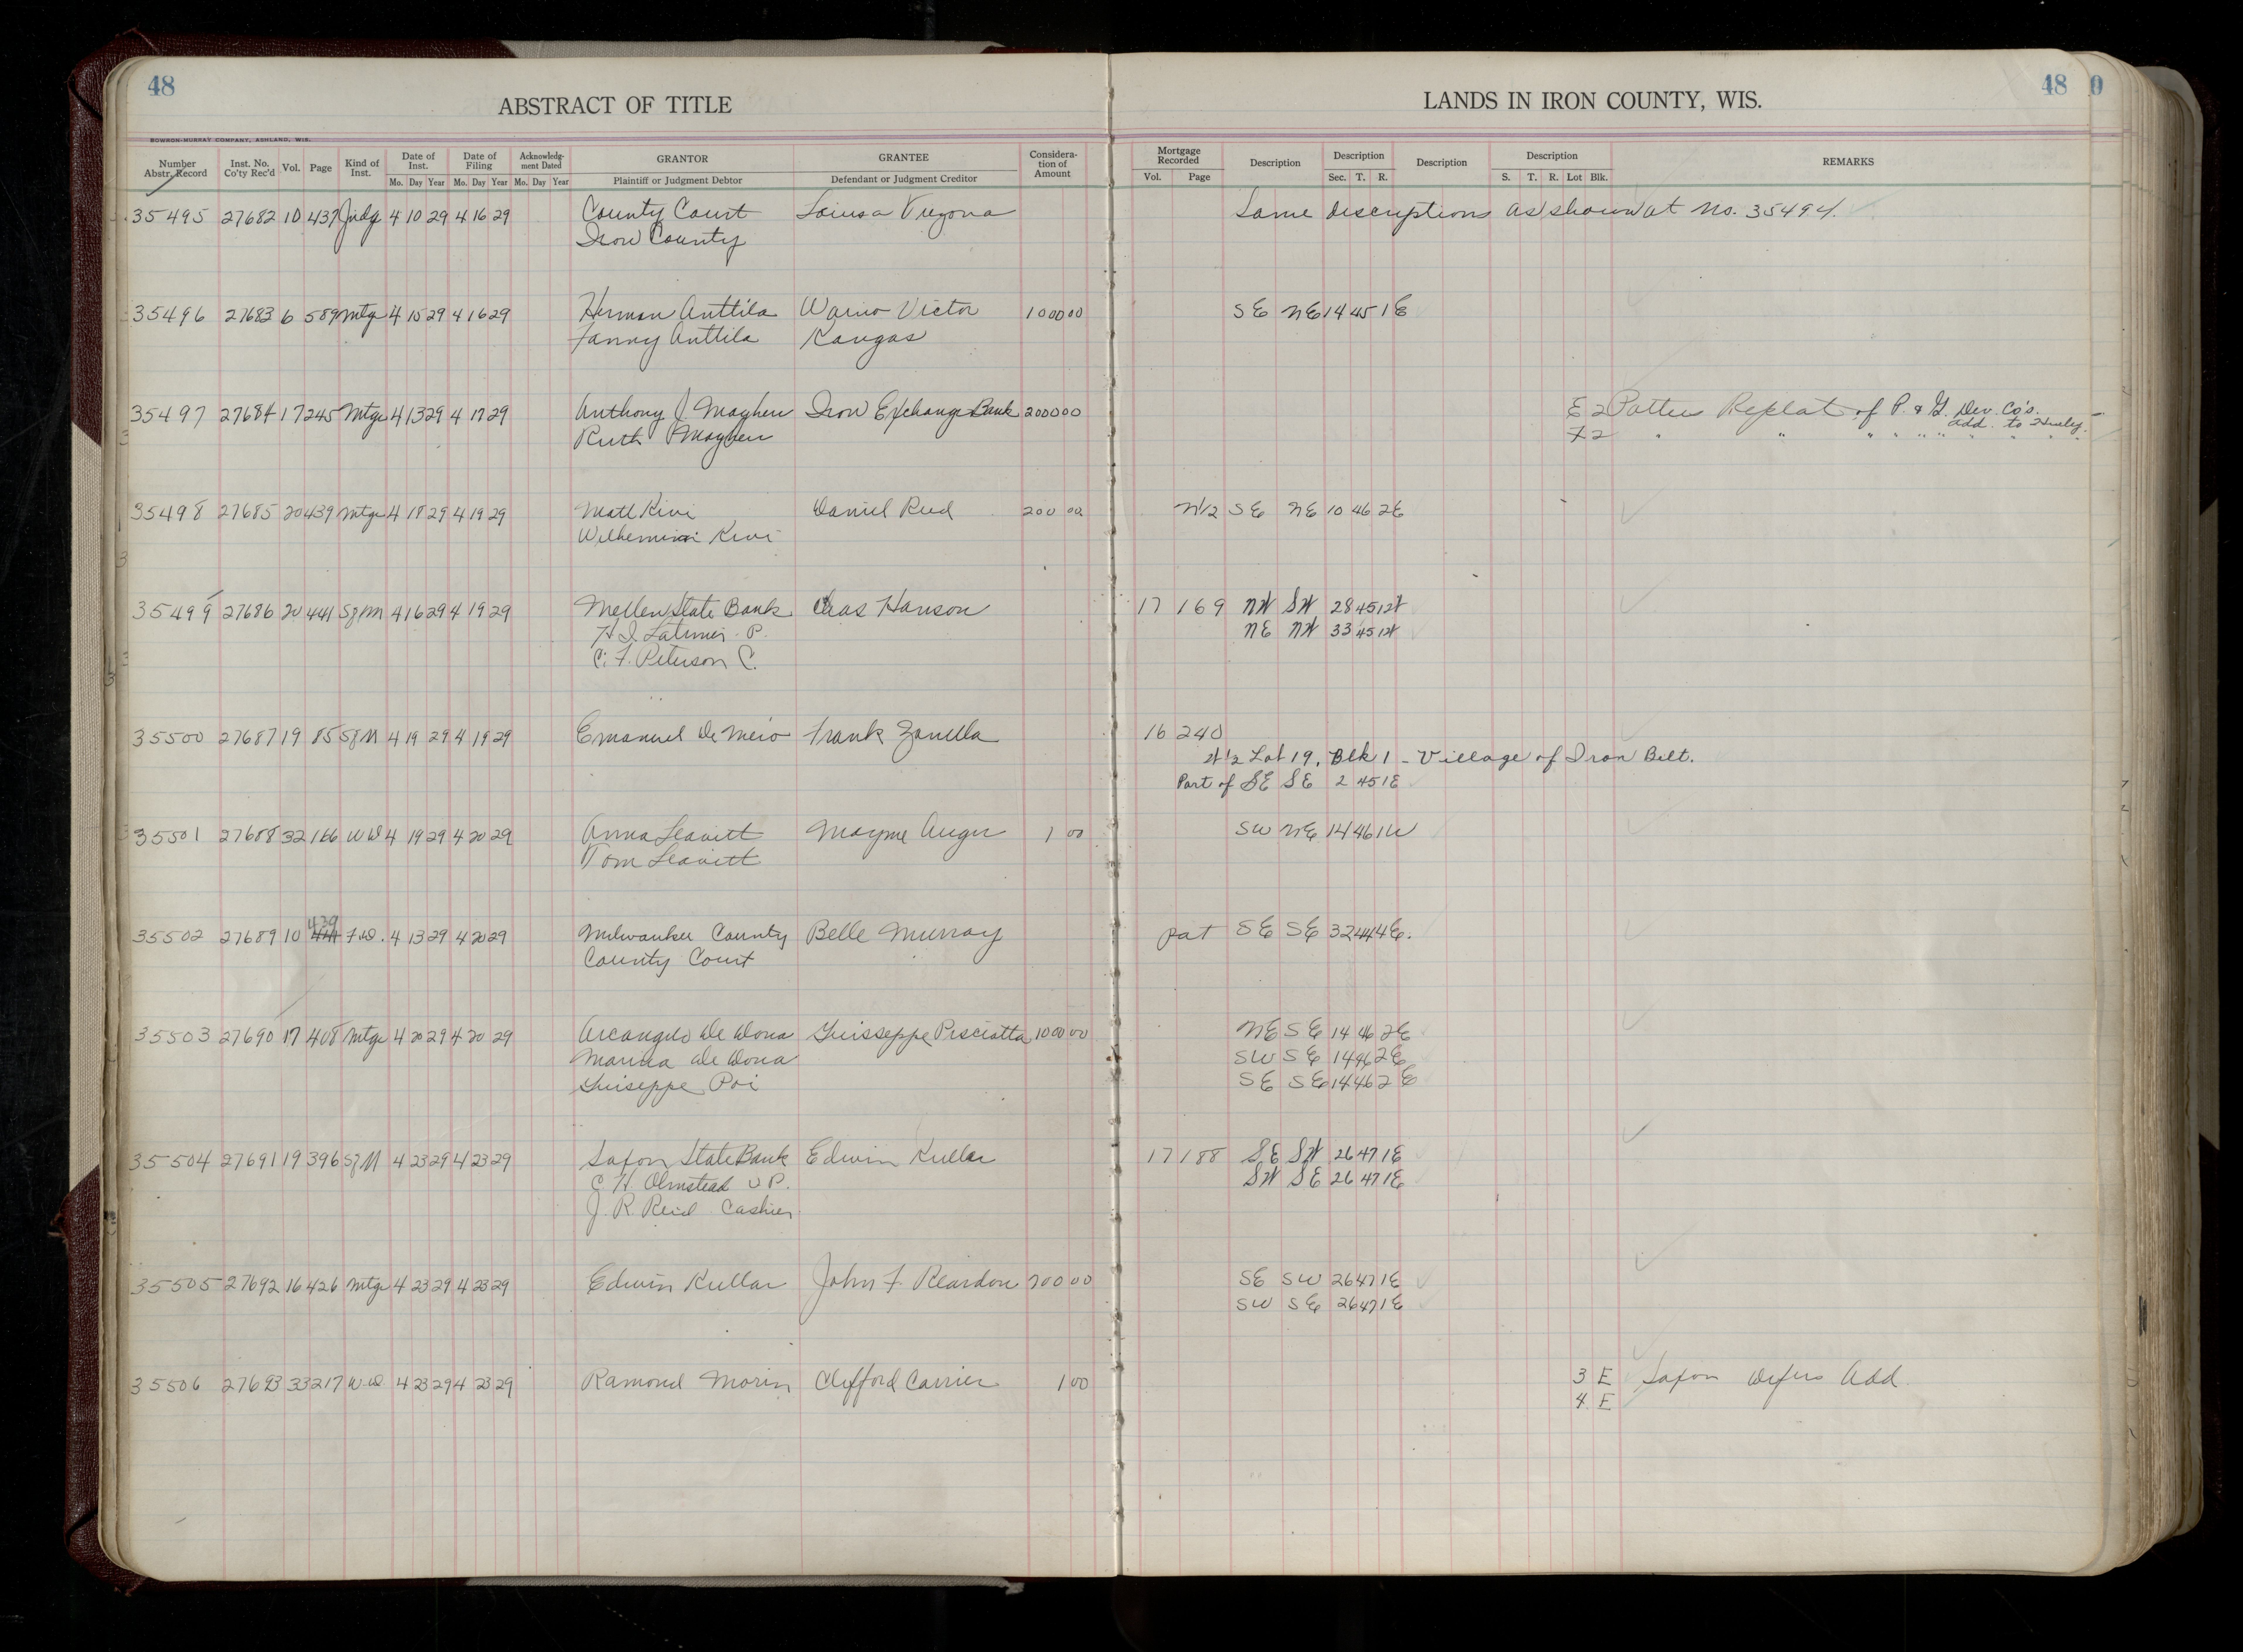 48
ABSTRACT OF TITLE
LANDS IN IRON COUNTY, WIS.
48 0
BOWRON-MURRAY COMPANY, ASHLAND, WIS.
Number Abstr. Record Inst. No. Co'ty Rec'd Vol. Page Kind of Inst. Date of Inst. Mo. Day Year Date of Filing Mo. Day Year Acknowledg-ment Dated Mo. Day Year GRANTOR Plaintiff or Judgment Debtor GRANTEE Defendant or Judgment Creditor Considera-tion of Amount Mortgage Recorded Vol. Page Description Description Sec. T. R. Description Description S. T. R. Lot Blk. REMARKS
35495 27682 10 437 Judg 4 10 29 4 16 29 County Court Same descriptions as shown at No. 35494.
Iron County
35496 27683 6 589 Mtge 4 15 29 4 16 29 Herman Anttila Waino Victor 1000 00 SE NE 14 45 1E
Fanny Anttila Kangas
35497 27684 17 245 Mtge 4 13 29 4 17 29 Anthony J. Mayhew Iron Exchange Bank 2000 00 E 2 Patten Replat of P. & G. Dev. Co's.
add. to Hurley.
Ruth Mayhew F 2 " " " " " " " " " "
35498 27685 20 439 Mtge 4 18 29 4 19 29 Matt Kivi Daniel Reid 200 00 N1/2 SE NE 10 46 2E
Kivi
35499 27686 20 441 SfM 4 16 29 4 19 29 Mellen State Bank Chas Hanson 17 169 NW SW 28 45 1W
H. I. Latimer P. NE NW 33 45 1W
C. F. Peterson C.
35500 27687 19 85 SfM 4 19 29 4 19 29 Emanuel De Meio Frank Zanella 16 240
W1/2 Lot 19, Blk 1 - Village of Iron Belt.
Part of SE SE 2 45 1E
35501 27688 32 166 WD 4 19 29 4 20 29 Anna Leavitt Mayme Auger 1 00 SW NE 14 46 1W
Tom Leavitt
35502 27689 10 439 F.D. 4 13 29 4 20 29 Milwaukee County Belle Murray pat SE SE 32 44 4E.
County Court
35503 27690 17 408 Mtge 4 20 29 4 20 29 Arcangelo De Dona Guisseppe Pisciotta 1000 00 NE SE 14 46 2E
Marina De Dona SW SE 14 46 2E
Guiseppe Poi SE SE 14 46 2E
35504 27691 19 396 SfM 4 23 29 4 23 29 Saxon State Bank Edwin Kullar 17 188 SE SW 26 47 1E
C. H. Olmstead V P. SW SE 26 47 1E
J. R. Reid Cashier
35505 27692 16 426 Mtge 4 23 29 4 23 29 Edwin Kullar John F Reardon 700 00 SE SW 26 47 1E
SW SE 26 47 1E
35506 27693 33 217 W.D 4 23 29 4 23 29 Ramond Morin Clifford Carrier 1 00 3 E Saxon Defers Add
4 E